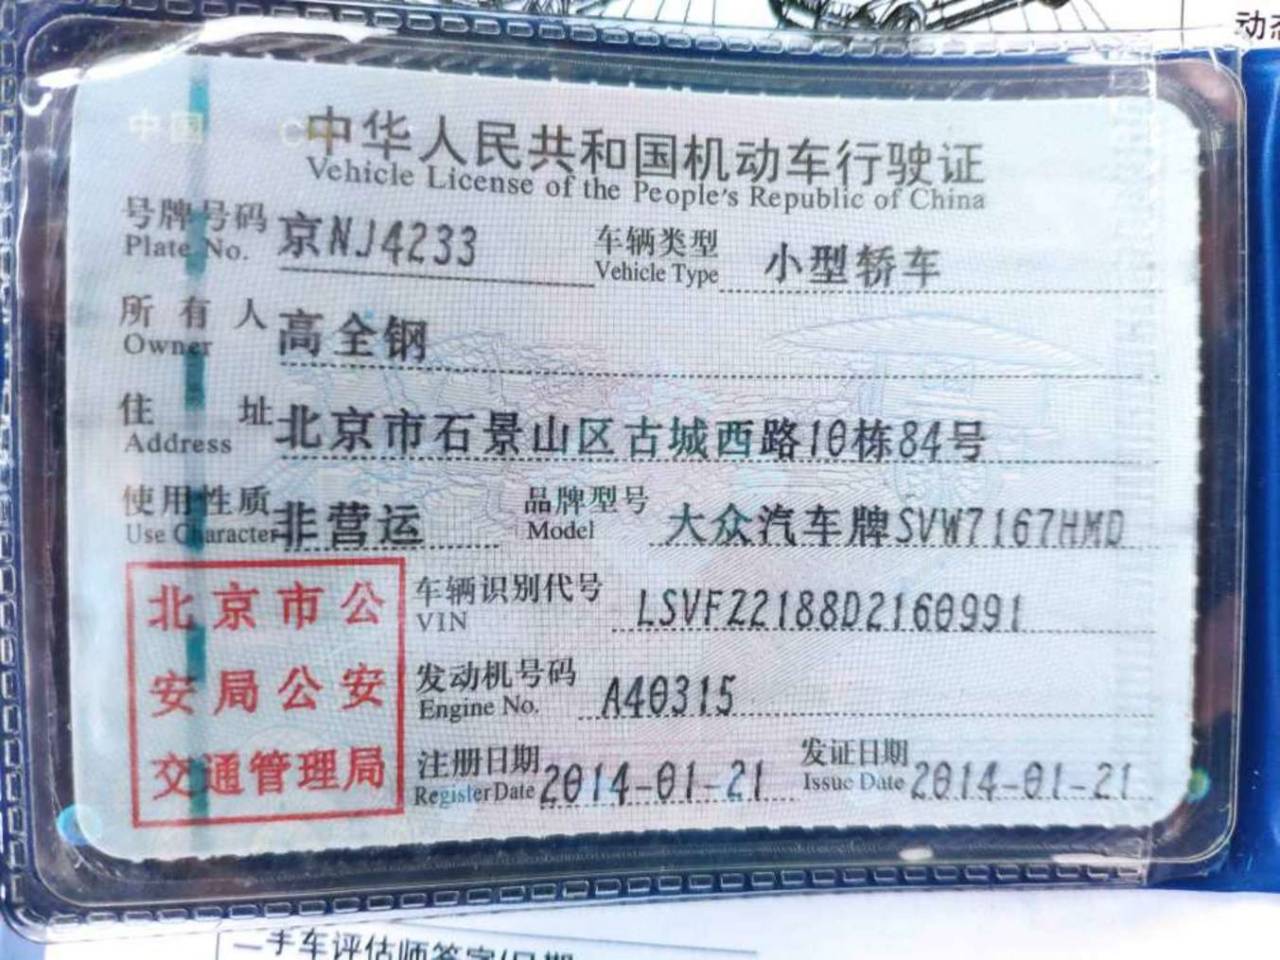 动态
中国 C
中华人民共和国机动车行驶证
Vehicle License of the People's Republic of China
号牌号码 京NJ4233 车辆类型 小型轿车
Plate No. Vehicle Type
所有人 高全钢
Owner
住址 北京市石景山区古城西路10栋84号
Address
使用性质 非营运 品牌型号 大众汽车牌SVW7167HMD
Use Character Model
北京市公
安局公安
交通管理局
车辆识别代号 LSVFZ2188D2160991
VIN
发动机号码 A40315
Engine No.
注册日期 2014-01-21 发证日期 2014-01-21
Register Date Issue Date
二手车评估师签字/日期